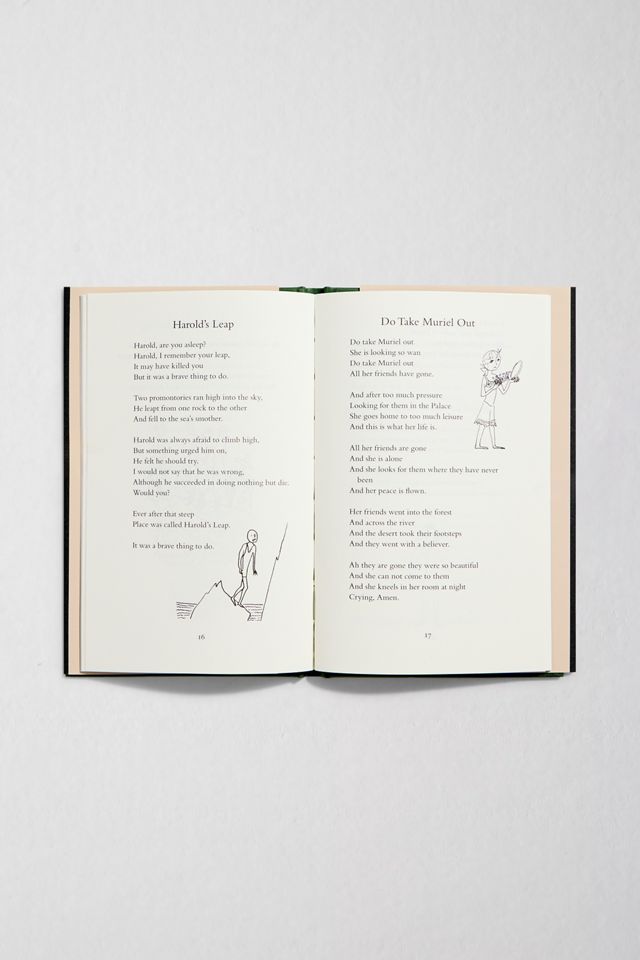 Harold's Leap
Harold, are you asleep?
Harold, I remember your leap,
It may have killed you
But it was a brave thing to do.
Two promontories ran high into the sky,
He leapt from one rock to the other
And fell to the sea's smother.
Harold was always afraid to climb high,
But something urged him on,
He felt he should try.
I would not say that he was wrong,
Although he succeeded in doing nothing but die.
Would you?
Ever after that steep
Place was called Harold's Leap.
It was a brave thing to do.
16
Do Take Muriel Out
Do take Muriel out
She is looking so wan
Do take Muriel out
All her friends have gone.
And after too much pressure
Looking for them in the Palace
She goes home to too much leisure
And this is what her life is.
All her friends are gone
And she is alone
And she looks for them where they have never
been
And her peace is flown.
Her friends went into the forest
And across the river
And the desert took their footsteps
And they went with a believer.
Ah they are gone they were so beautiful
And she can not come to them
And she kneels in her room at night
Crying, Amen.
17